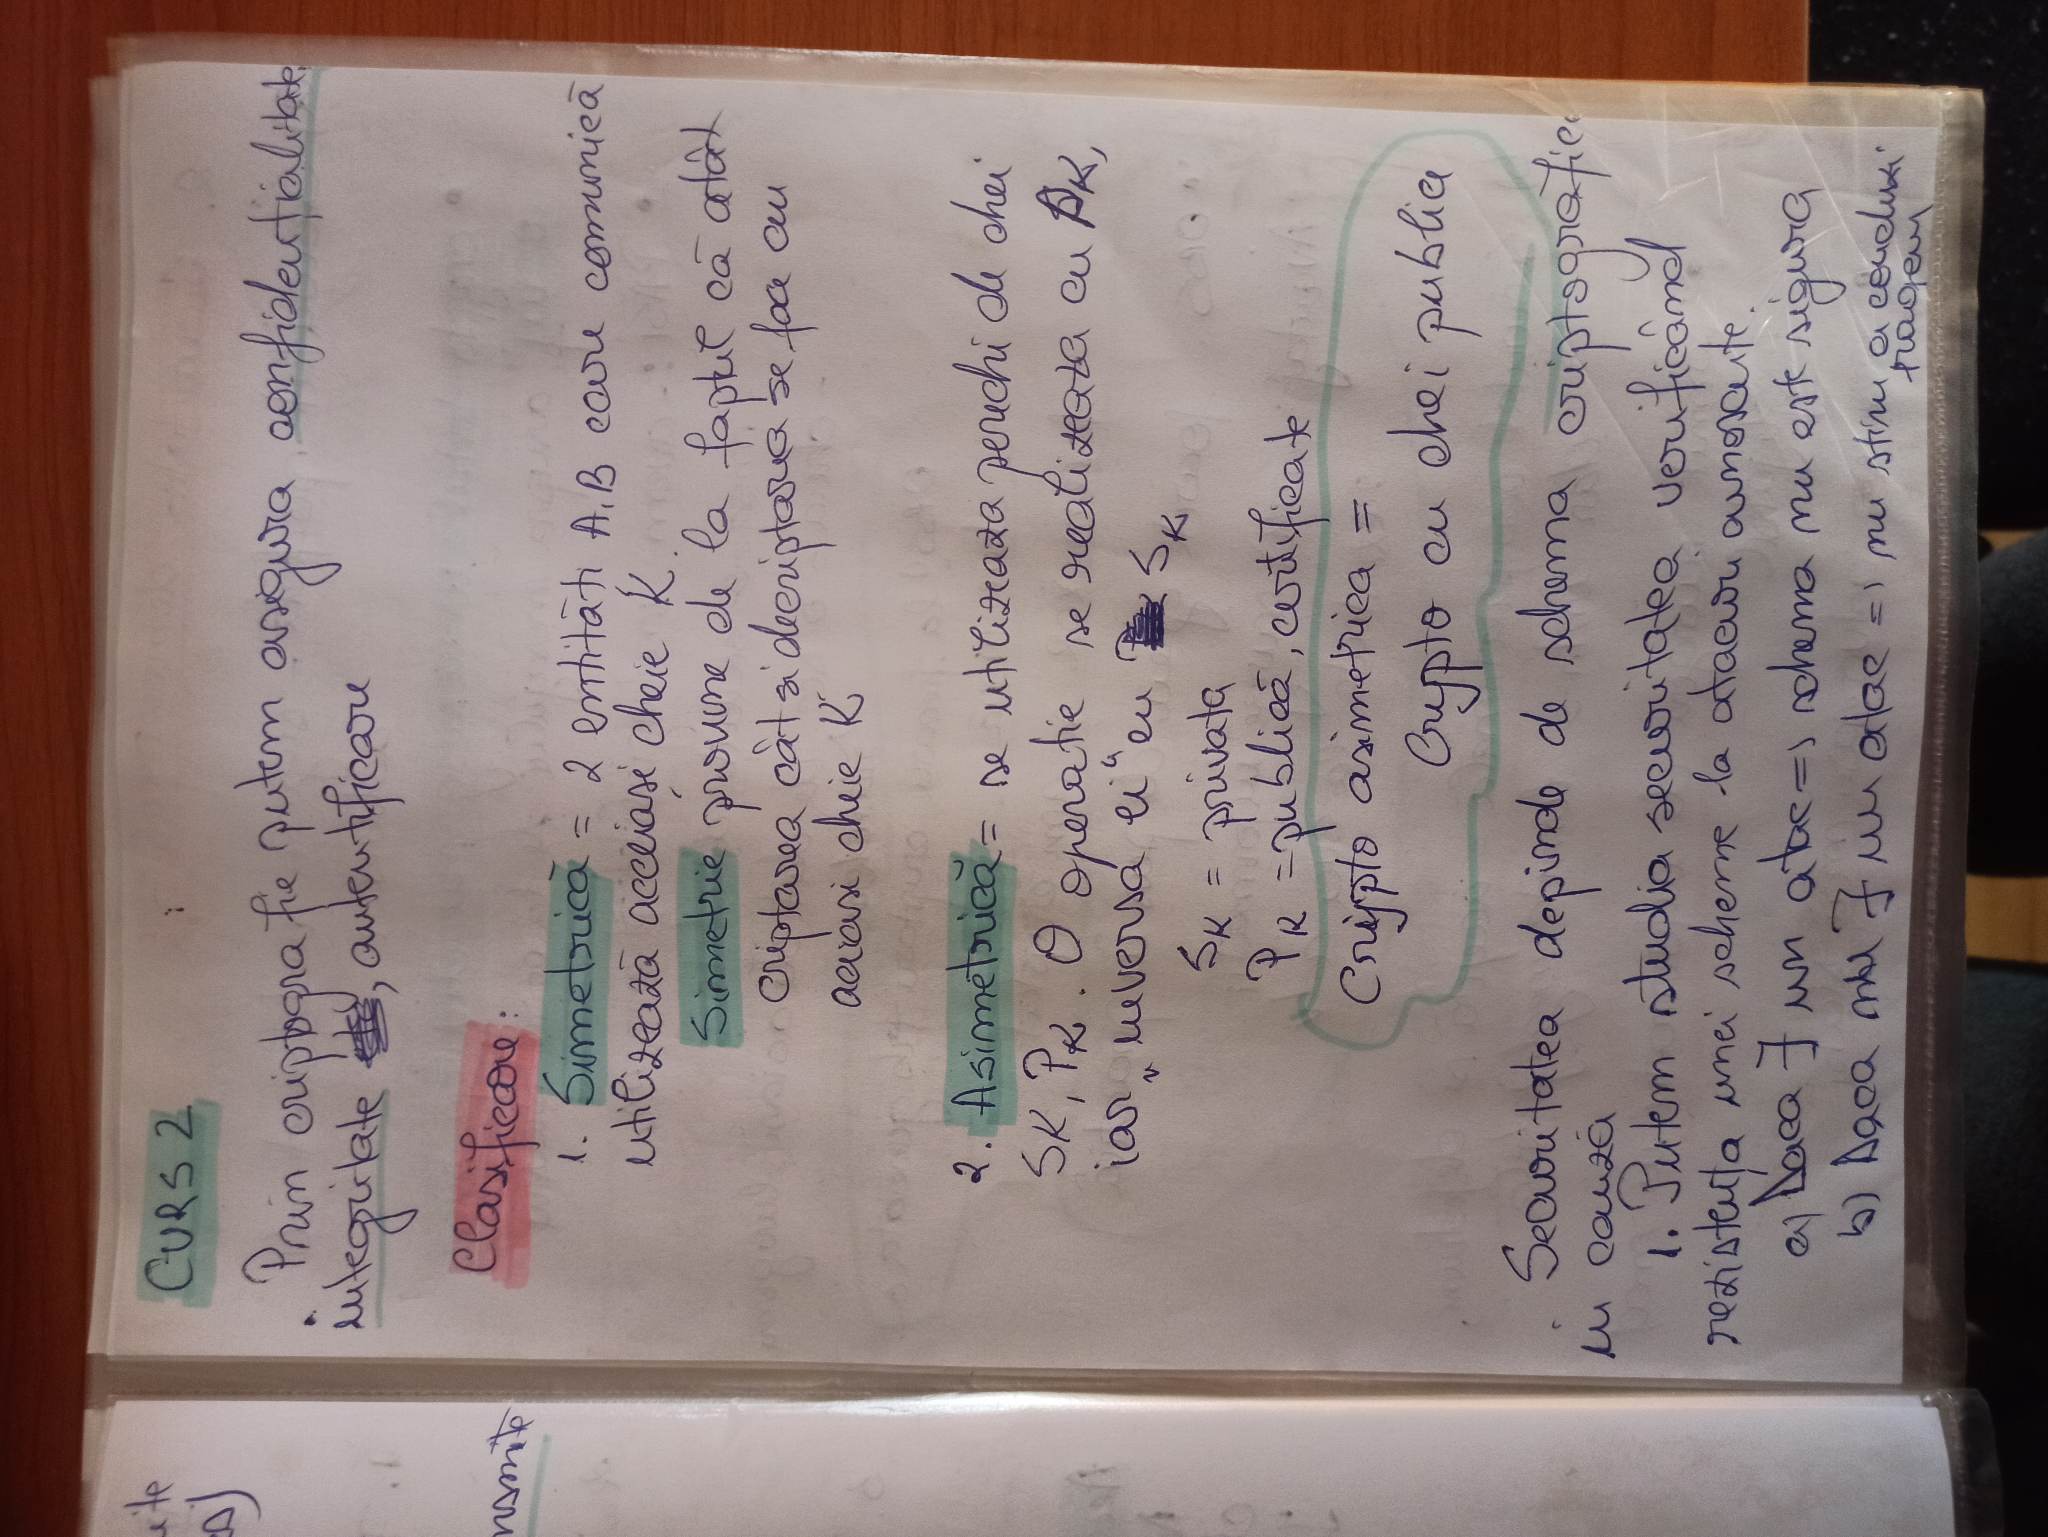 CURS 2
Prin criptografie putem asigura confidentialitate,
integritate, autentificare
Clasificare:
1. Simetrică = 2 entităti A,B care comunică
utilizează aceeiasi cheie K
Simetrie provine de la faptul că atât
criptarea cât si decriptarea se fac cu
aceiasi cheie K
2. Asimetrică = se utilizeaza perechi de chei
SK, PK. O operatie se realizeata cu PK,
iar "inversa ei" cu SK
SK = privata
PK = publică, certificate
Crypto asimetrica =
Crypto cu chei publice
Securitatea depinde de schema criptografica
in cauză
1. Putem studia securitatea verificând
rezistenta unei scheme la atacuri cunoscute.
a) Daca ∃ un atac => schema nu este sigura
b) Daca nu ∃ un atac => nu stim ce concluzi
tragem
nsmite